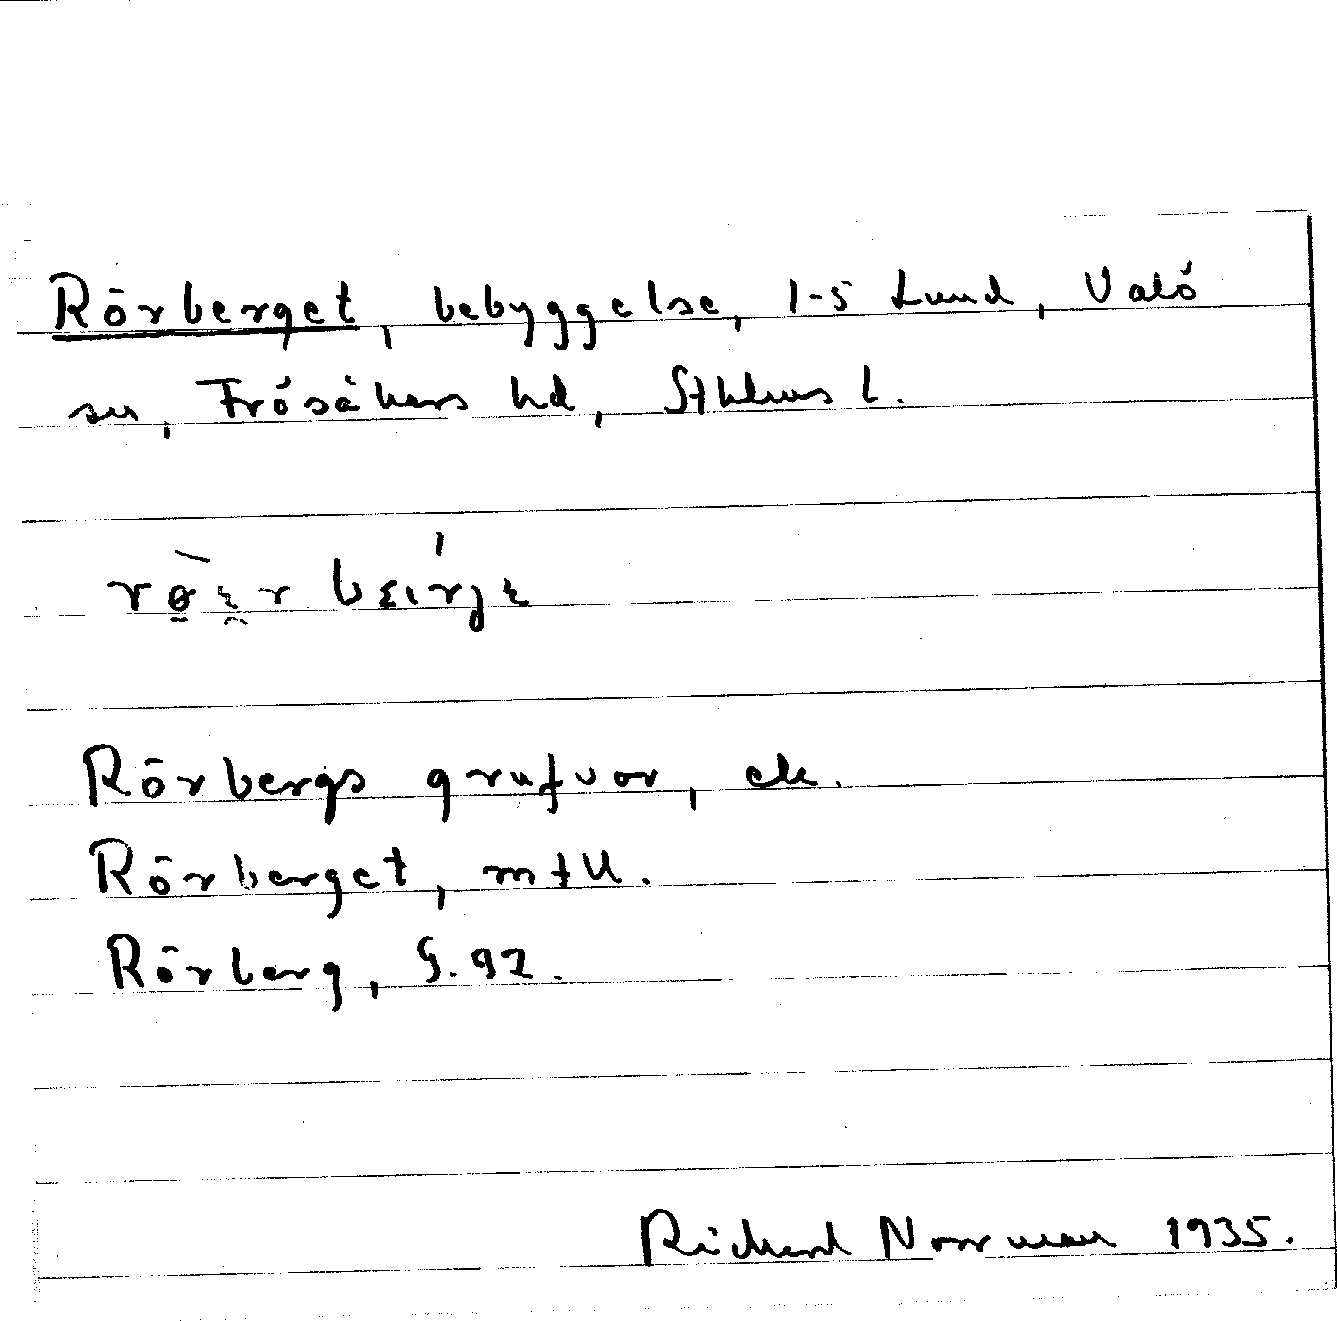 Rörberget, bebyggelse, 1-5 Lund, Valö
sn, Frösåkers hd, Sthlms l.
Rörbergs grufvor, ek.
Rörberget, mtU.
Rörberg, G. 92.
Richard Norrman 1935.